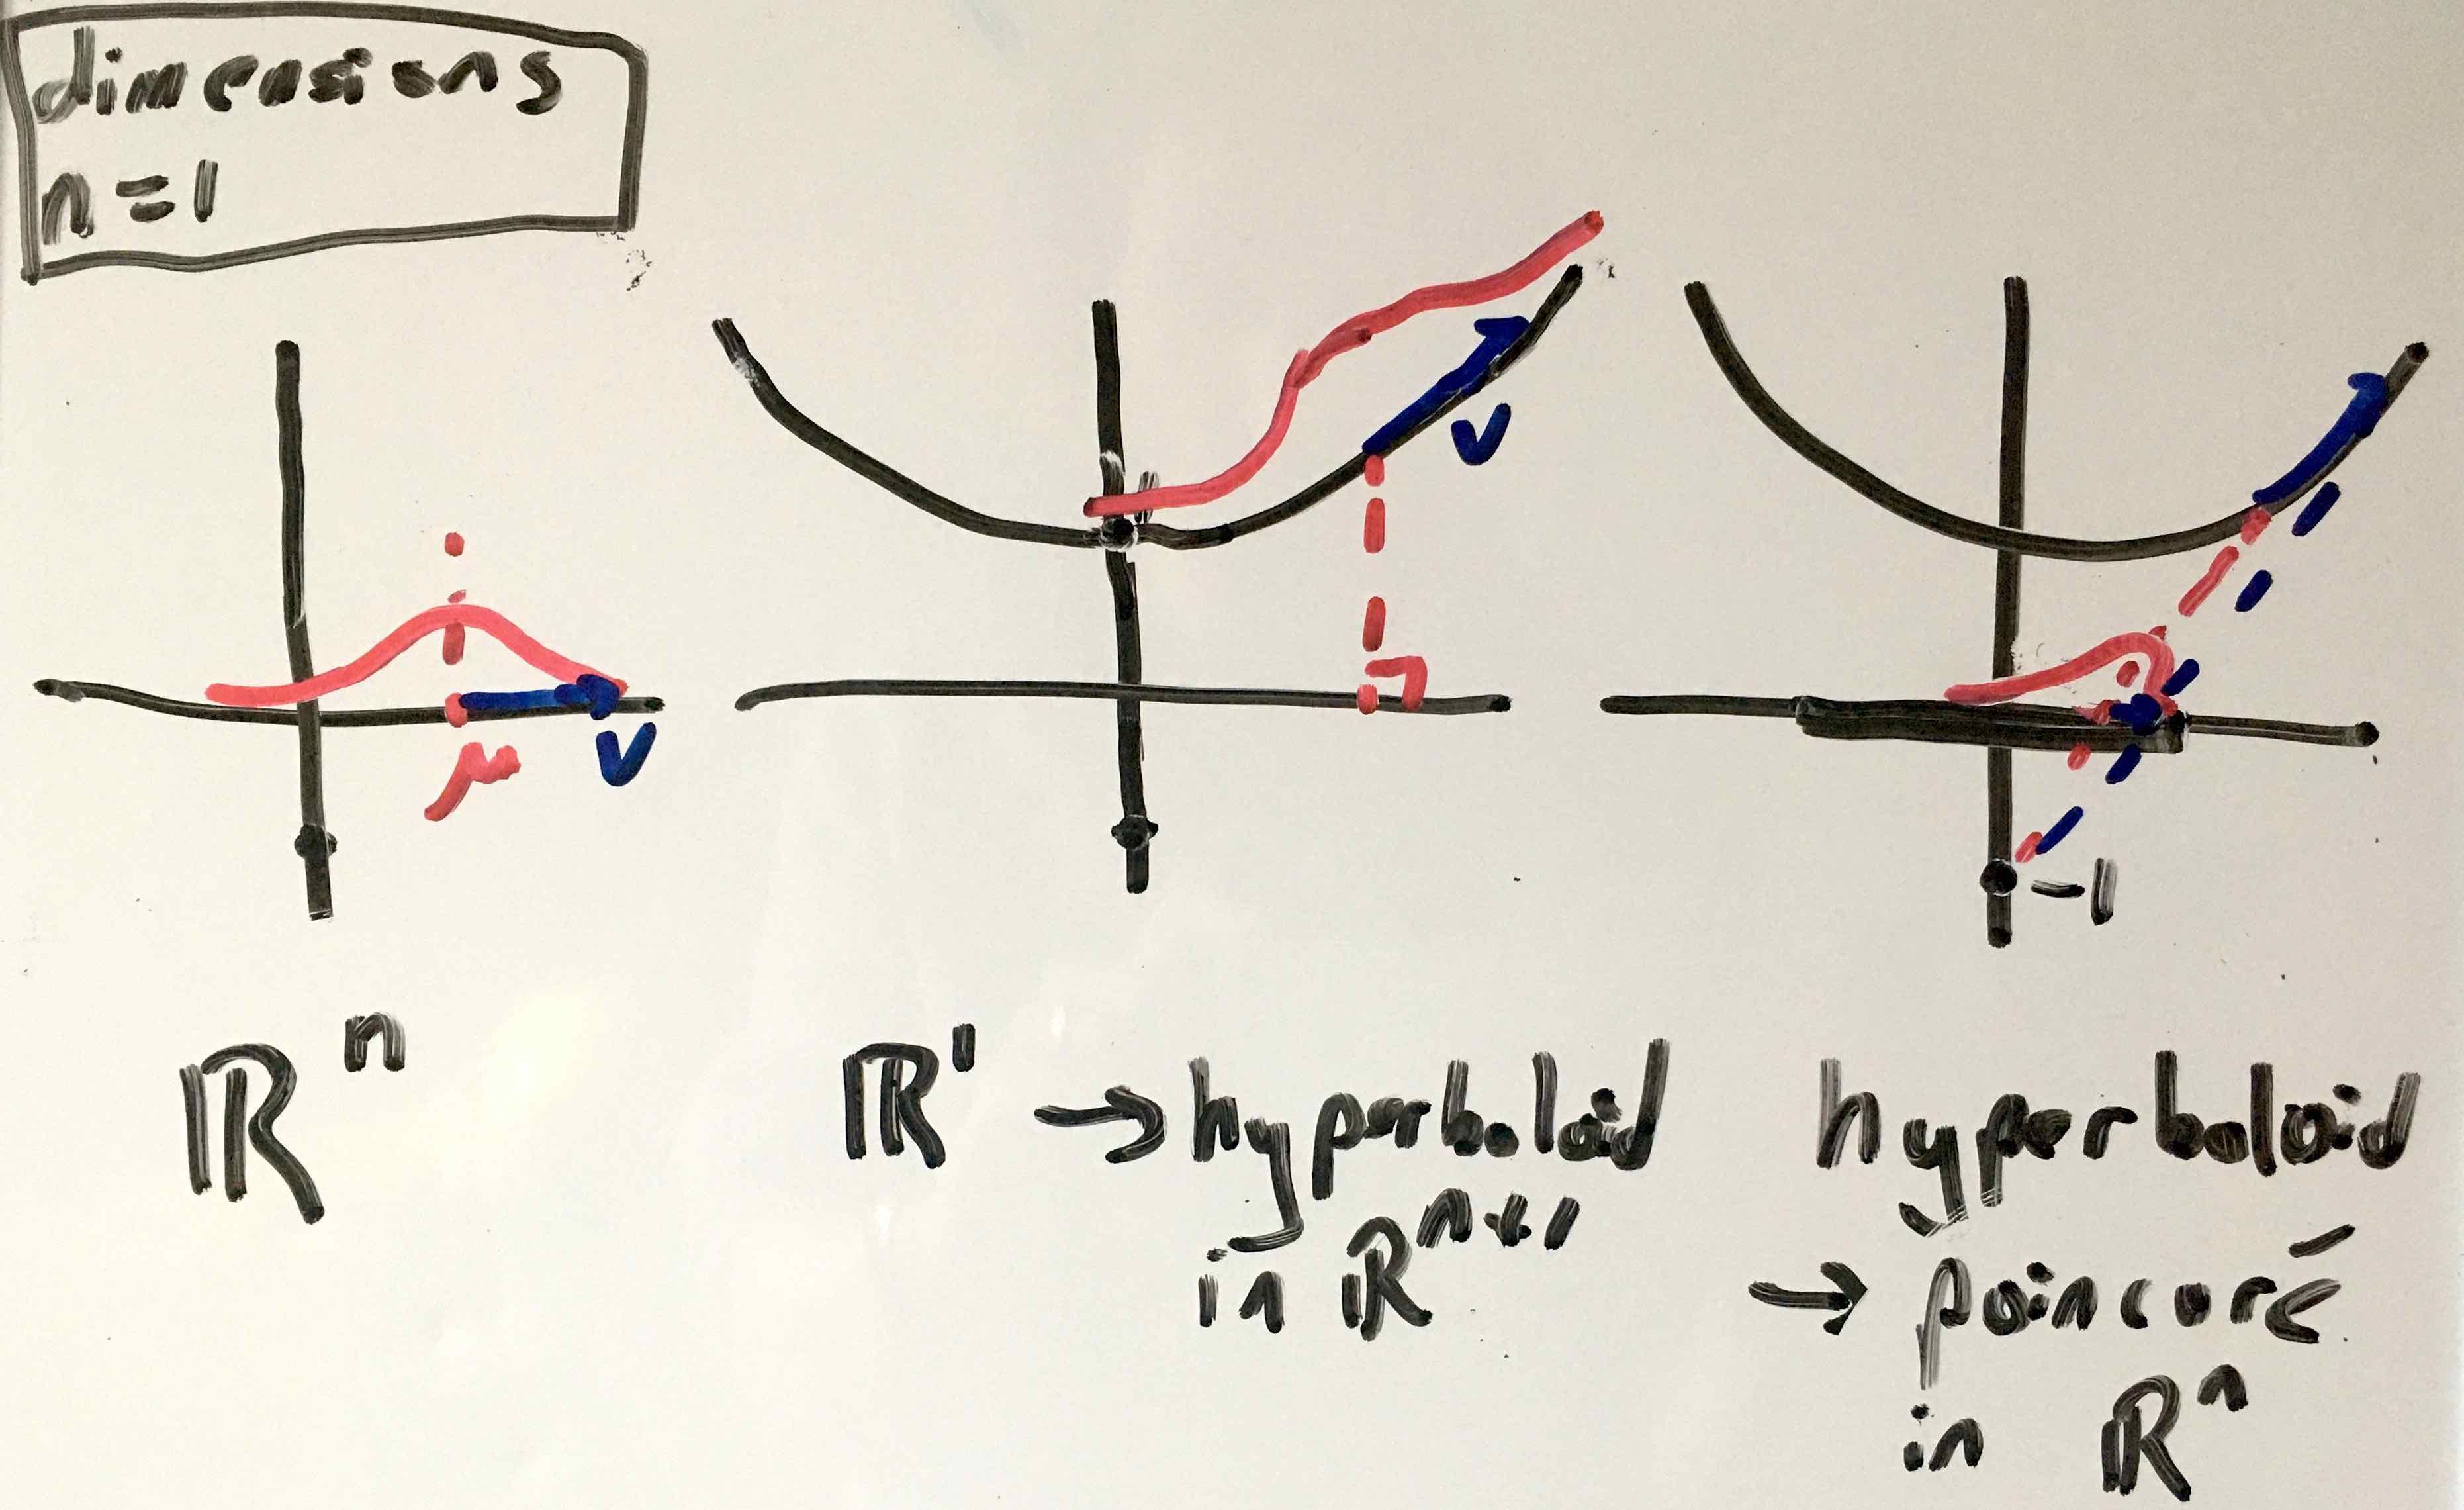 dimensions
n=1
v
μ
v
-1
ℝⁿ
ℝ¹ → hyperboloid
in ℝⁿ⁺¹
hyperboloid
→ poincaré
in ℝⁿ